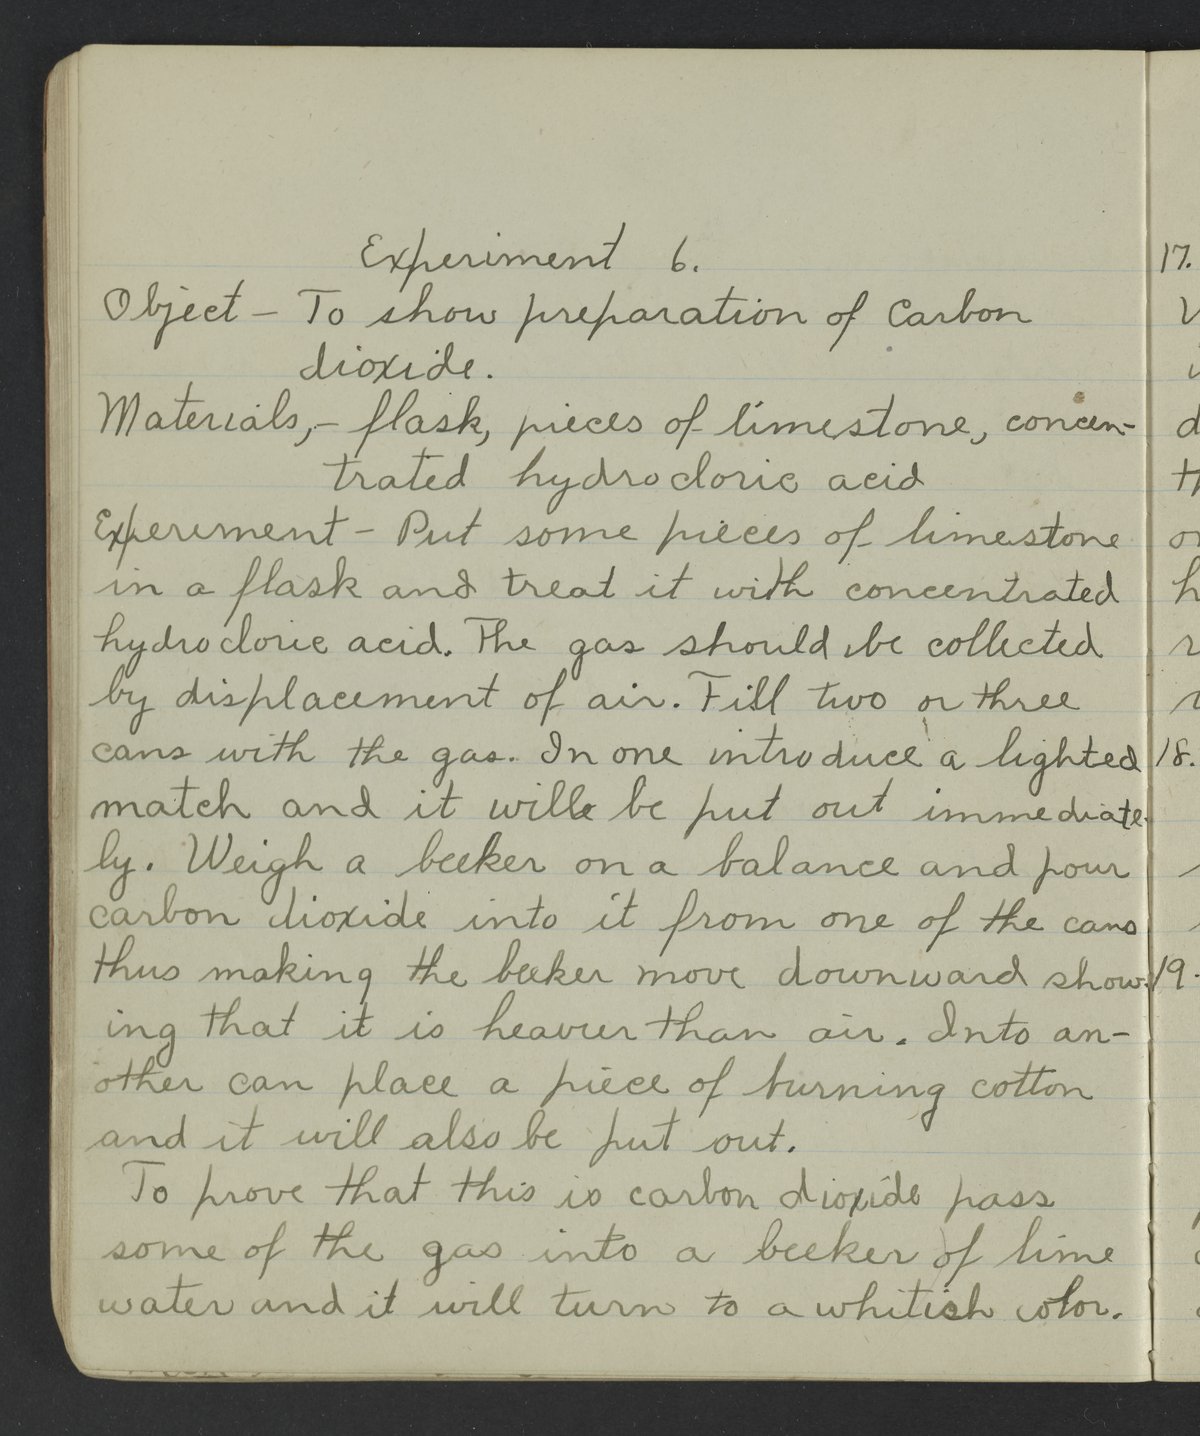 Experiment 6.
Object - To show preparation of Carbon
dioxide.
Materials,- flask, pieces of limestone, concen-
trated hydrocloric acid
Experiment - Put some pieces of limestone
in a flask and treat it with concentrated
hydrocloric acid. The gas should be collected
by displacement of air. Fill two or three
cans with the gas. In one introduce a lighted
match and it will be put out immediate-
ly. Weigh a beeker on a balance and pour
carbon dioxide into it from one of the cans
thus making the beeker move downward show-
ing that it is heavier than air. Into an-
other can place a piece of burning cotton
and it will also be put out.
To prove that this is carbon dioxide pass
some of the gas into a beeker of lime
water and it will turn to a whitish color.
17.
18.
19.